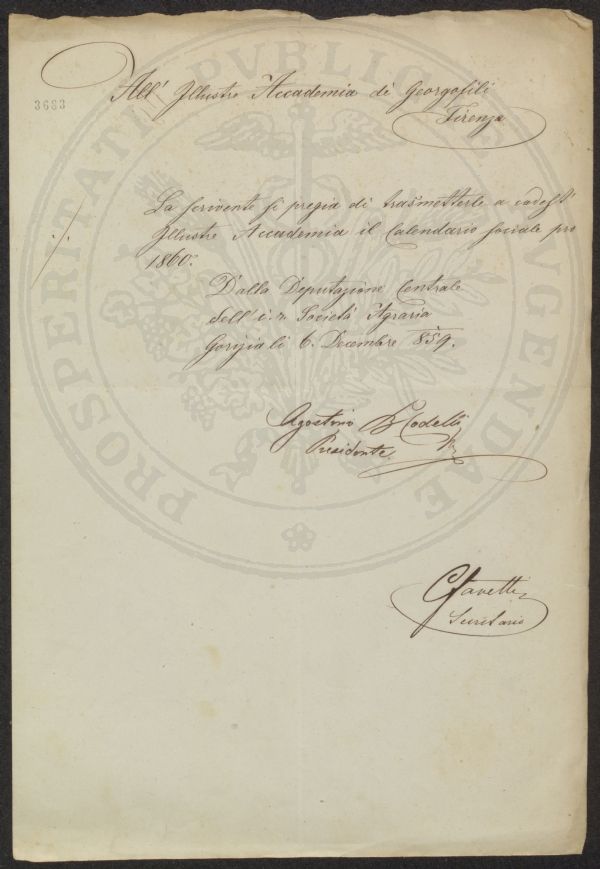 PROSPERITATI PVBLICAE AVGENDAE
3683
All' Illustre Accademia di Georgofili
Firenze
La scrivente si pregia di trasmetterle a codest'
Illustre Accademia il Calendario sociale pro
1860.
Dalla Deputazione Centrale
dell' i. r. Società Agraria
Gorizia li 6. Decembre 859.
Agostino Codelli
Presidente
Secretario